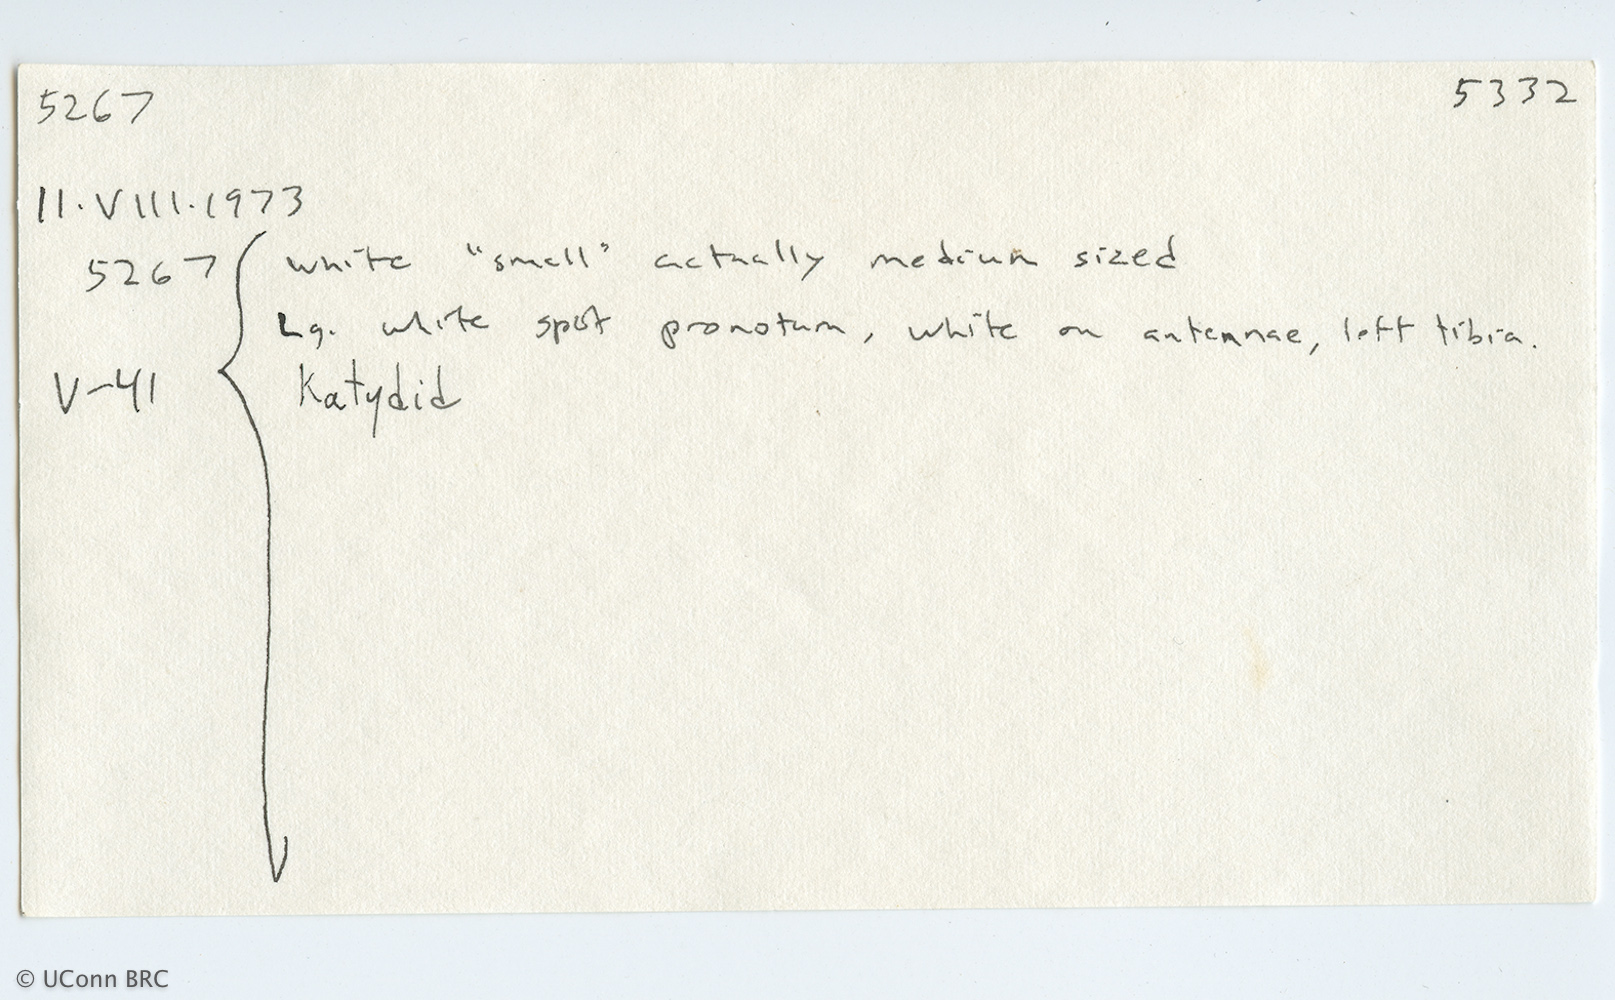 5267 5332
11.VIII.1973
5267 white "small" actually medium sized
Lg. white spot pronotum, white on antennae, left tibia.
V-41 Katydid
© UConn BRC